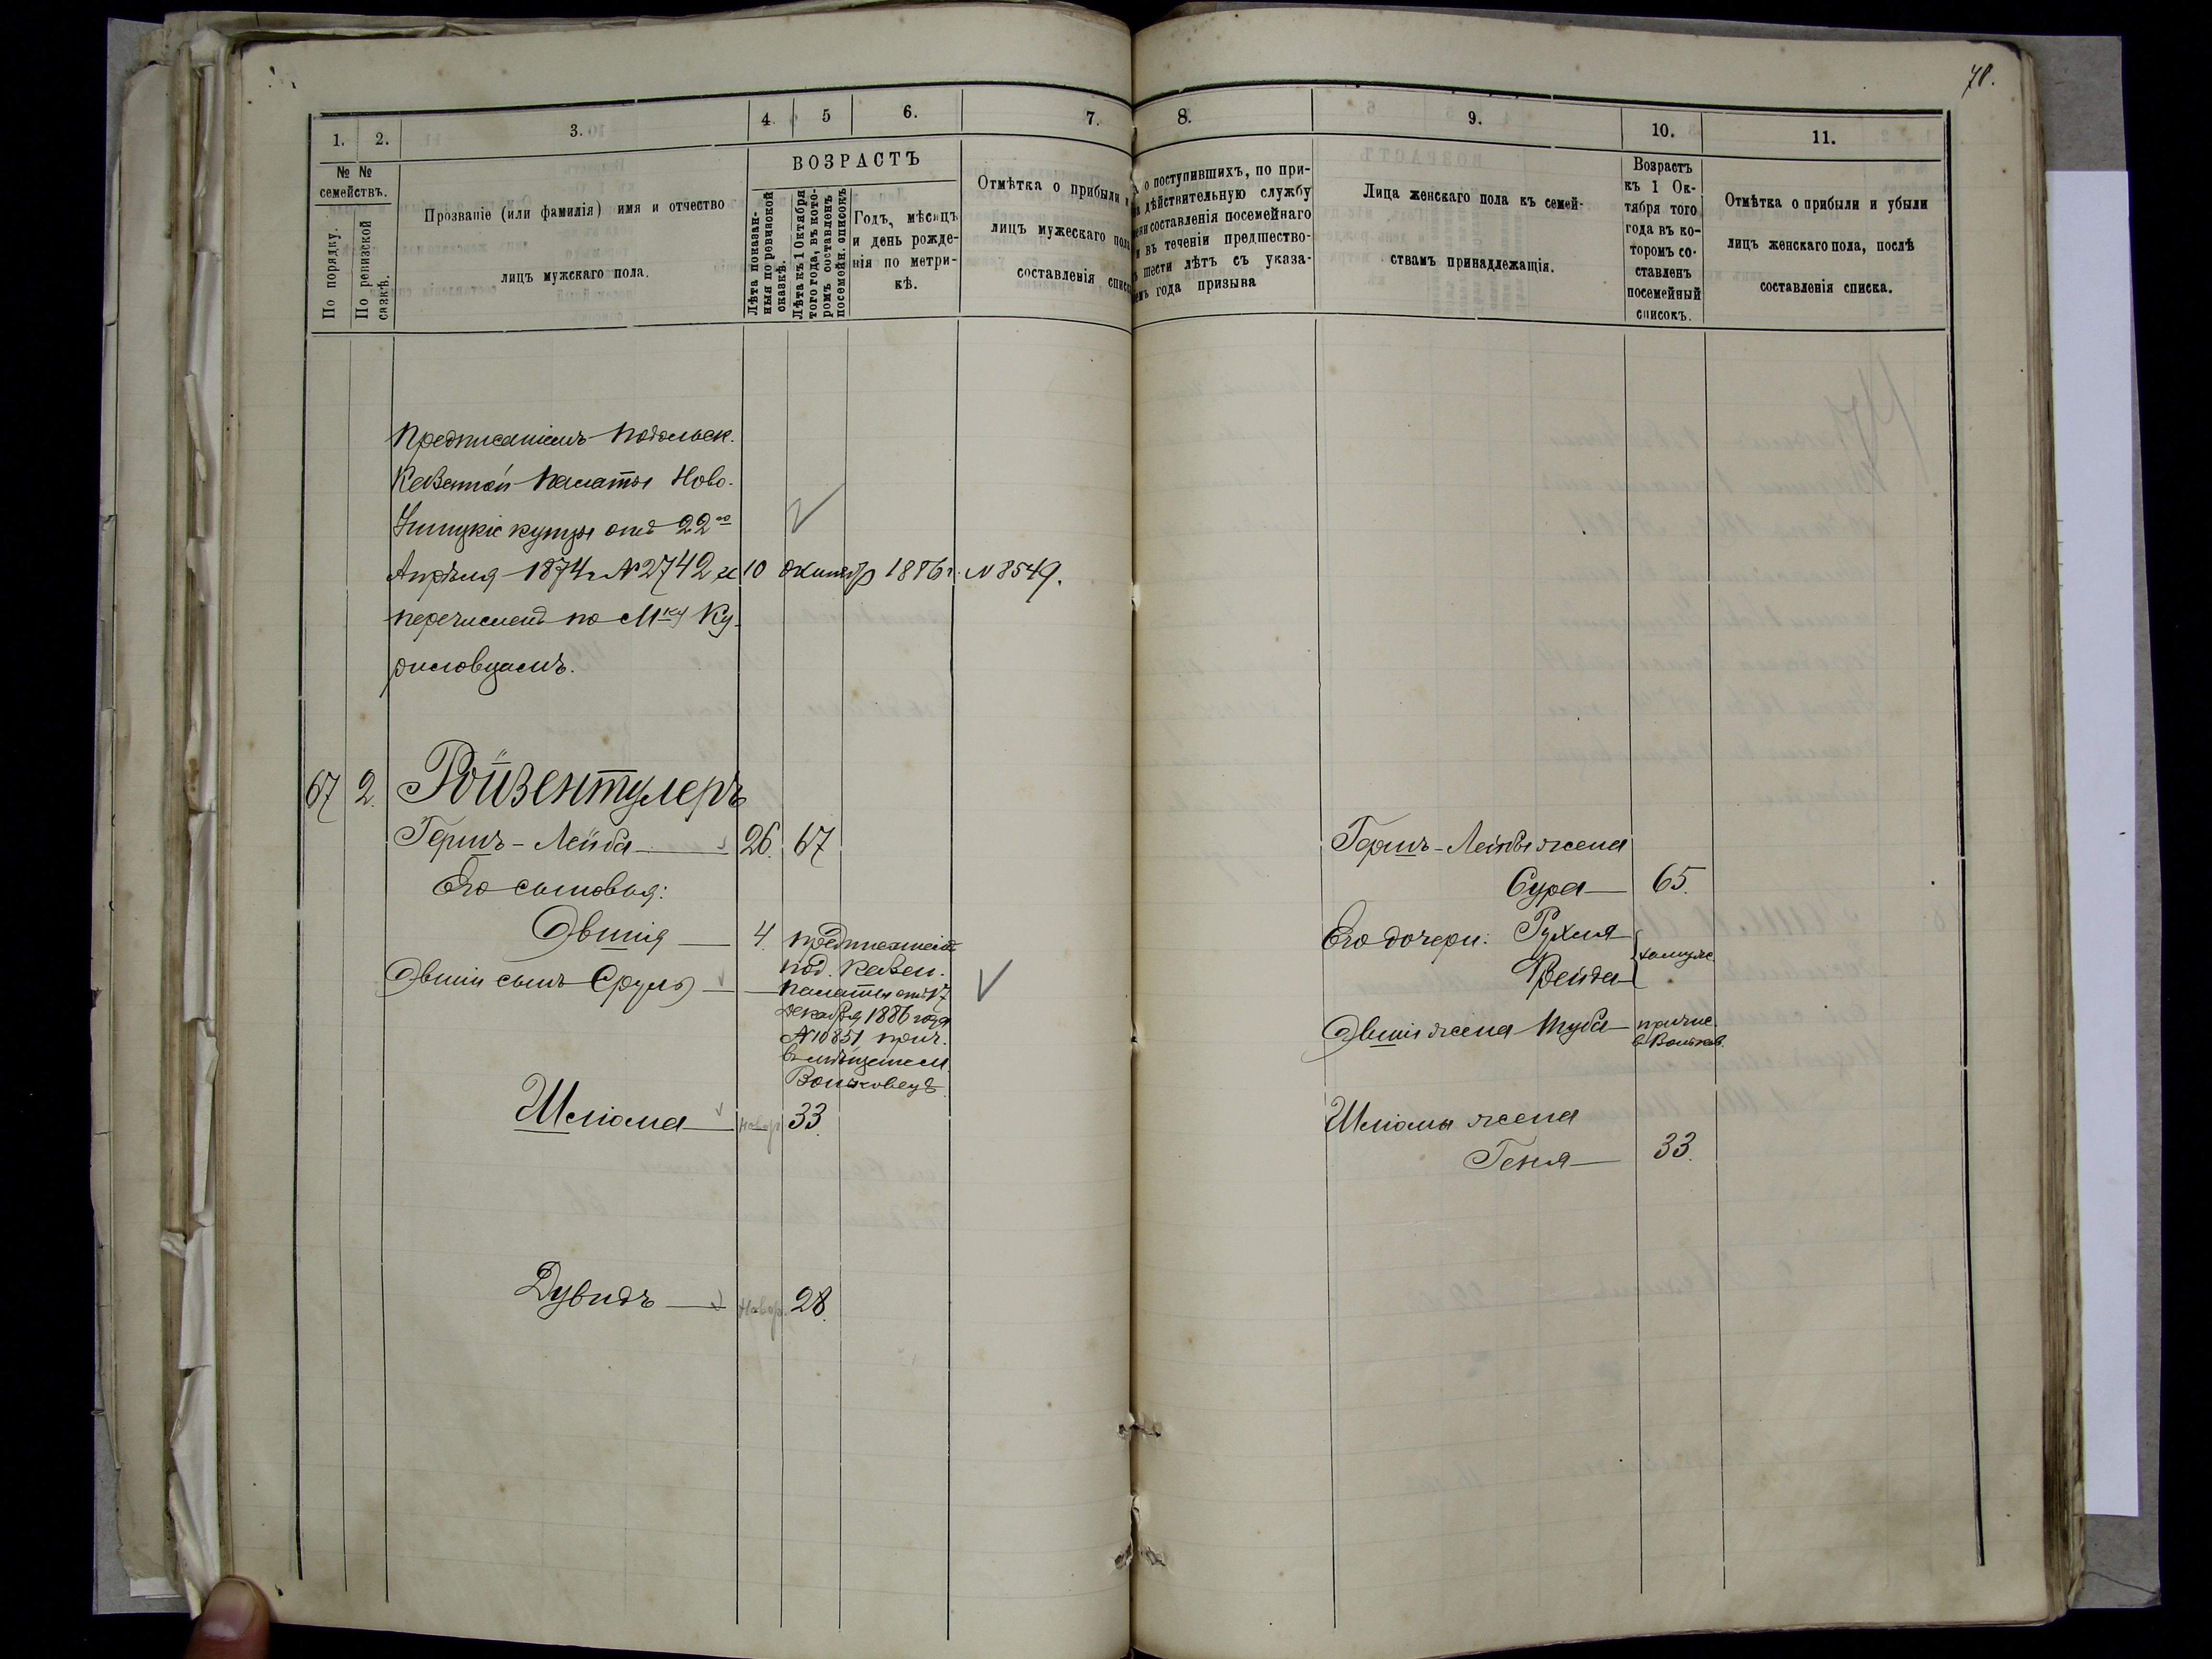 78.
1. 2. 3. 4. 5 6. 7. 8. 9. 10. 11.
№ № семействъ.
По порядку.
По ревизской сказкѣ.
Прозваніе (или фамилія) имя и отчество
лицъ мужскаго пола.
ВОЗРАСТЪ
Лѣта показан-
ныя по ревизской
сказкѣ.
Лѣта къ 1 Октября
того года, въ кото-
ромъ составленъ
посемейн. списокъ
Годъ, мѣсяцъ
и день рожде-
нія по метри-
кѣ.
Отмѣтка о прибыли и
лицъ мужескаго пола
составленія списка
о поступившихъ, по при-
на дѣйствительную службу
мени составленія посемейнаго
и въ теченіи предшество-
шести лѣтъ съ указа-
емъ года призыва
Лица женскаго пола къ семей-
ствамъ принадлежащія.
Возрастъ
къ 1 Ок-
тября того
года въ ко-
торомъ со-
ставленъ
посемейный
списокъ.
Отмѣтка о прибыли и убыли
лицъ женскаго пола, послѣ
составленія списка.
Предписаніемъ Подольск.
Казенной Палаты Ново-
купцы отъ 22го
Апрѣля 1874 г. № 2742 и 10 октября 1886 г. № 8549.
перечисленъ по Мку Ку-
риловцамъ.
67 2. Ройзентулеръ
Гершъ-Лейба 26. 67
Его сыновья:
Эвшія 4. предписаніемъ
Под. Казен.
Эвшіи сынъ Сруль Палаты отъ 17
декабря 1886 года
№ 10851 прич.
въ мѣщане м.
Воньковецъ
Шліома новор. 33.
Дувидъ новор. 28.
Гершъ-Лейбы жена
Сура 65.
Его дочери: Рухля
Фейда } замуж.
Эвшіи жена Туба причис.
в Воньков.
Шліомы жена
Геня 33.